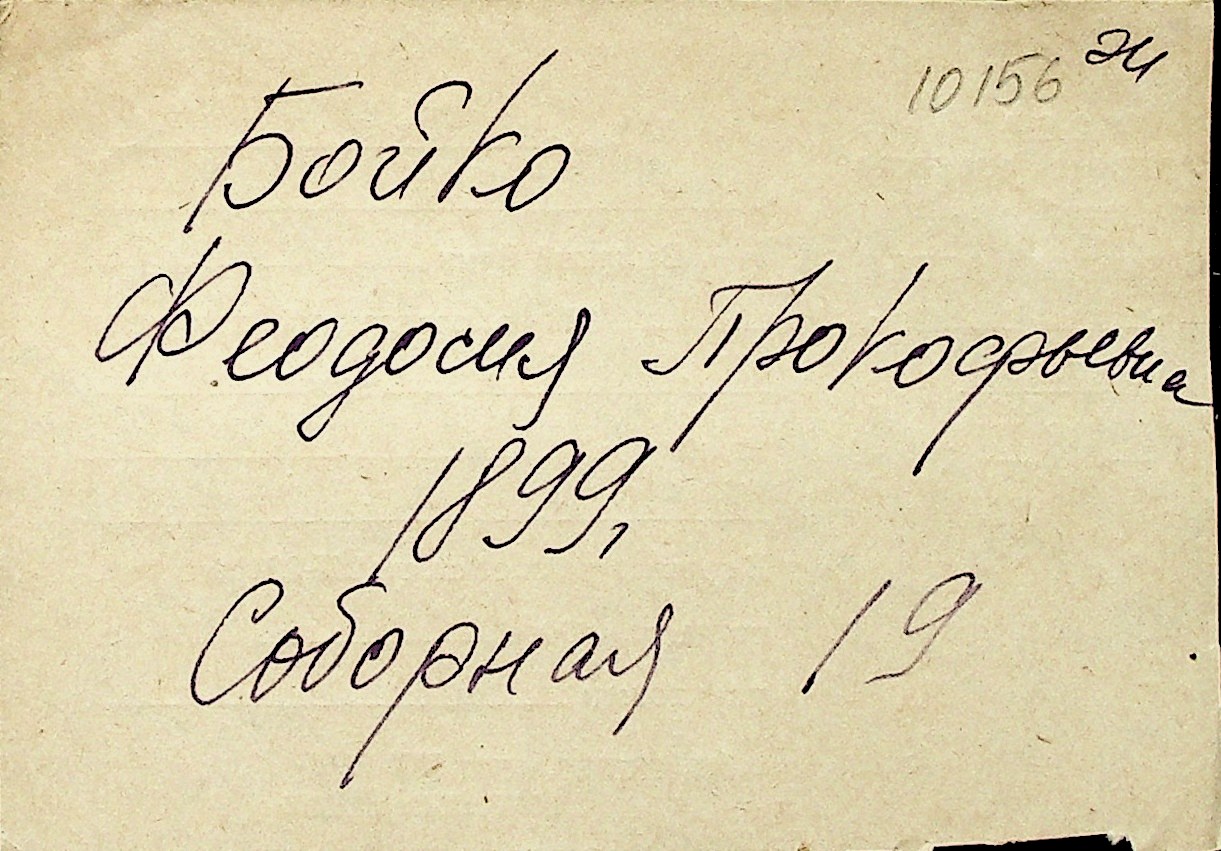 10156 эи
Бойко
Феодосия Прокофьевна
1899,
Соборная 19